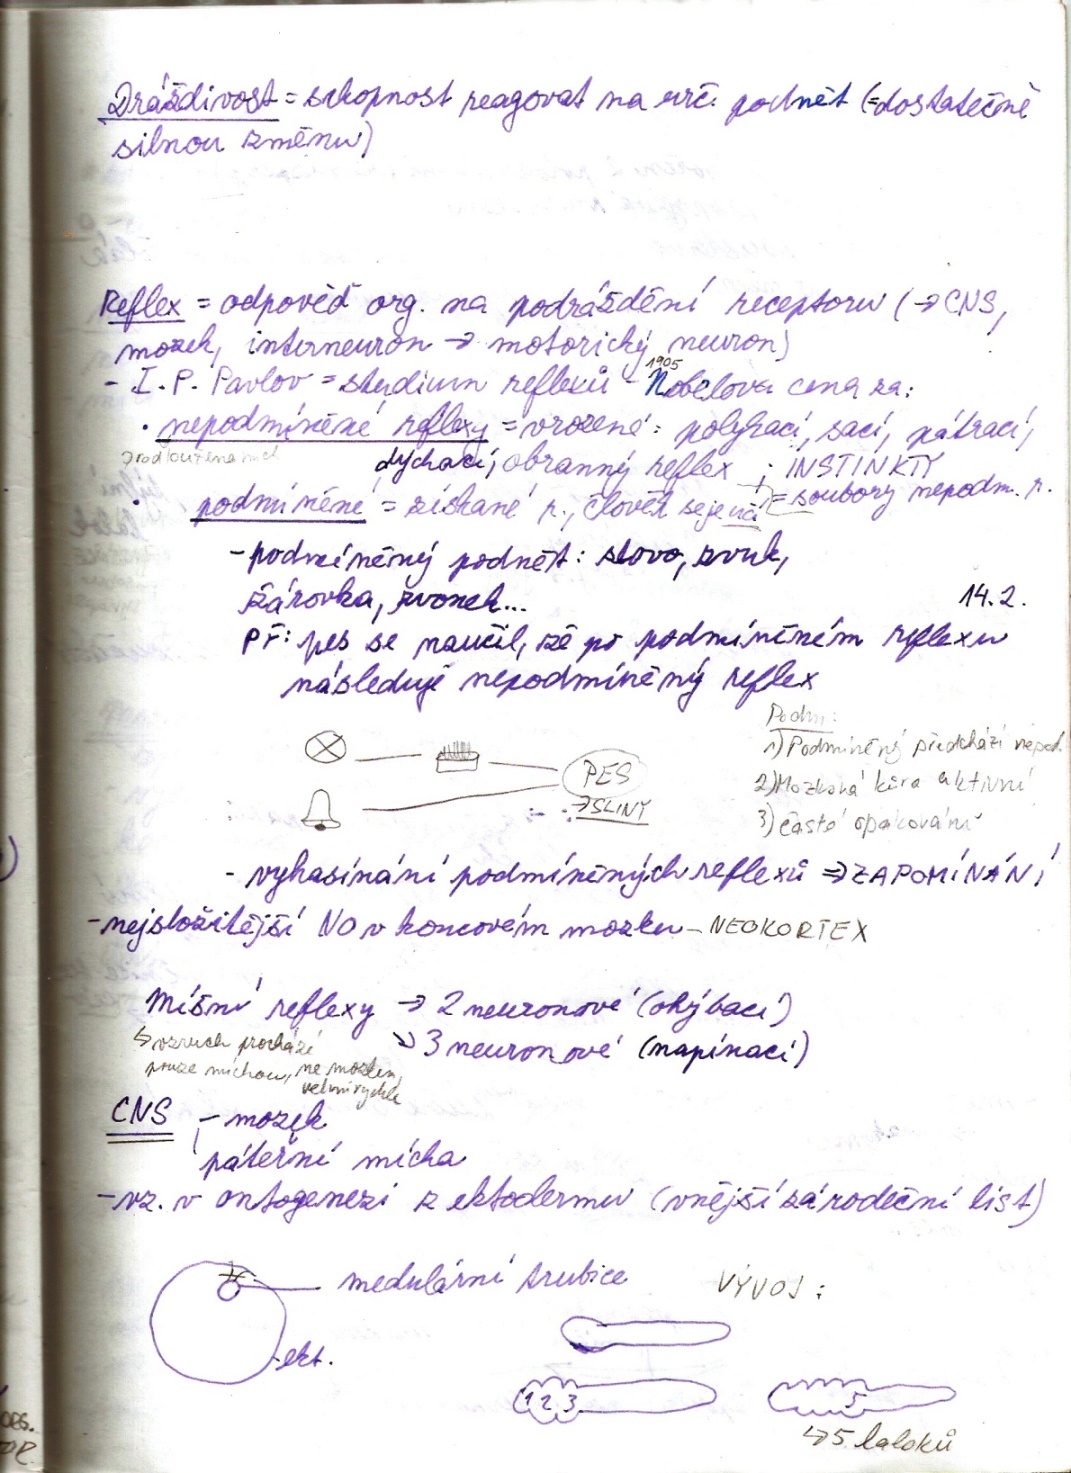 Dráždivost = schopnost reagovat na urč. podnět (=dostatečně
silnou změnu)
Reflex = odpověď org. na podráždění receptoru (→ CNS,
mozek, interneuron → motorický neuron)
- I. P. Pavlov = studium reflexů - Nobelova cena za:
1905
• nepodmíněné reflexy = vrozené: polykací, sací, pátrací,
prodloužená mích
dýchací, obranný reflex ; INSTINKTY
= soubory nepodm. r.
• podmíněné = získané r., člověk se je učí
- podmíněný podnět: slovo, zvuk,
žárovka, zvonek...
14.2.
PŘ: pes se naučil, že po podmíněném reflexu
následuje nepodmíněný reflex
Podm:
1) Podmíněný předchází nepod.
2) Mozková kůra aktivní
3) časté opakování
PES
→ SLINY
- vyhasínání podmíněných reflexů ⇒ ZAPOMÍNÁNÍ
- nejsložitější NO v koncovém mozku - NEOKORTEX
Míšní reflexy → 2 neuronové (ohýbací)
↘ 3 neuronové (napínací)
↳ vzruch prochází
pouze míchou, ne mozkem,
velmi rychlé
CNS - mozek
páteřní mícha
- vz. v ontogenezi z ektodermu (vnější zárodeční list)
medulární trubice
VÝVOJ:
ekt.
1 2 3
5
↳ 5 laloků